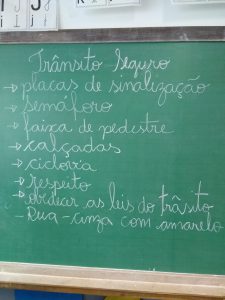 Trânsito Seguro
→ placas de sinalização
→ semáforo
→ faixa de pedestre
→ calçadas
→ ciclovia
→ respeito
→ obedecer as leis do trâsito
- Rua - cinza com amarelo